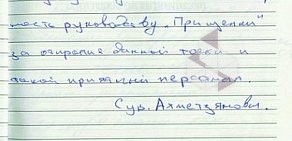 ность руководству „Прищепки"
за открытие данной точки и
такой приятный персонал.
Сув. Ахметзяновы.